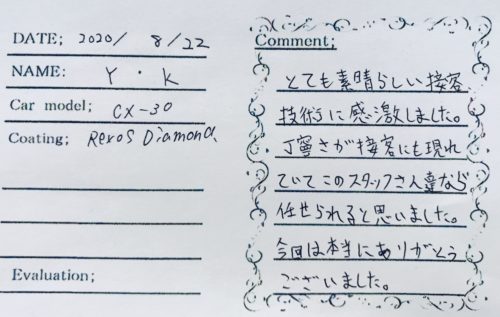 DATE; 2020/ 8/22
NAME: Y・K
Car model; CX-30
Coating; Revos Diamond
Evaluation;
Comment;
とても素晴らしい接客
技術に感激しました。
丁寧さが接客にも現れ
ていてこのスタッフさん達なら
任せられると思いました。
今回は本当にありがとう
ございました。